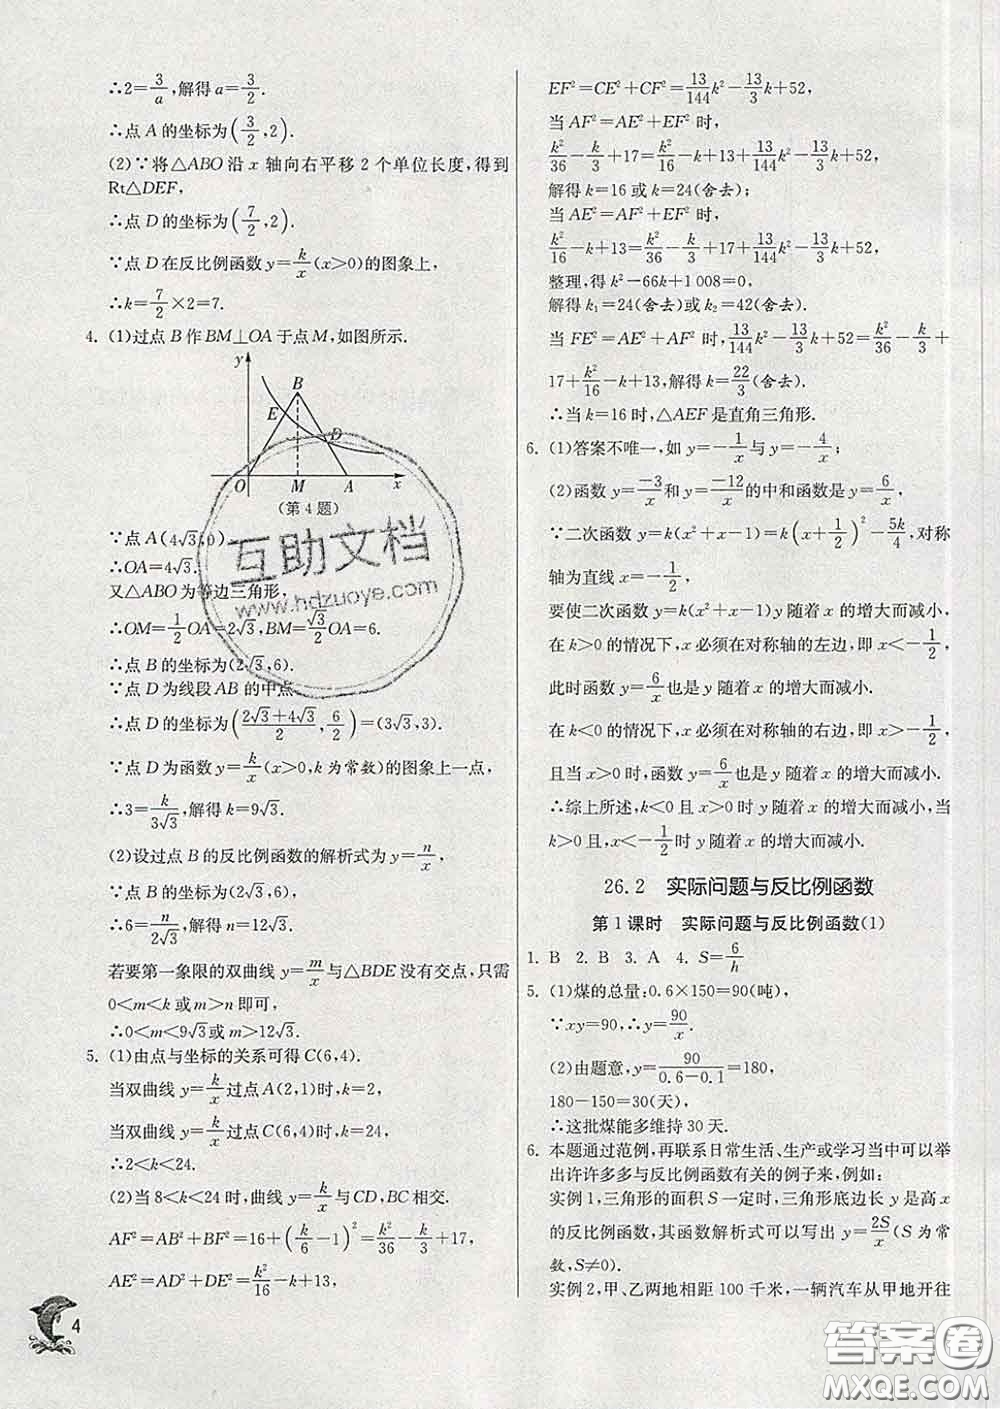 ∴2=3/a,解得a=3/2.
∴点A的坐标为(3/2,2).
(2)∵将△ABO沿x轴向右平移2个单位长度,得到
Rt△DEF,
∴点D的坐标为(7/2,2).
∵点D在反比例函数y=k/x(x>0)的图象上,
∴k=7/2×2=7.
4. (1)过点B作BM⊥OA于点M,如图所示.
y
B
E
D
O M A x
(第4题)
∵点A(4√3,0),
∴OA=4√3.
又△ABO为等边三角形,
∴OM=1/2OA=2√3,BM=√3/2OA=6.
∴点B的坐标为(2√3,6).
∵点D为线段AB的中点
∴点D的坐标为((2√3+4√3)/2,6/2)=(3√3,3).
∵点D为函数y=k/x(x>0,k为常数)的图象上一点,
∴3=k/(3√3),解得k=9√3.
(2)设过点B的反比例函数的解析式为y=n/x,
∵点B的坐标为(2√3,6),
∴6=n/(2√3),解得n=12√3.
若要第一象限的双曲线y=m/x与△BDE没有交点,只需
0<m<k或m>n即可,
∴0<m<9√3或m>12√3.
5. (1)由点与坐标的关系可得C(6,4).
当双曲线y=k/x过点A(2,1)时,k=2,
当双曲线y=k/x过点C(6,4)时,k=24,
∴2<k<24.
(2)当8<k<24时,曲线y=k/x与CD,BC相交.
AF²=AB²+BF²=16+(k/6-1)²=k²/36-k/3+17,
AE²=AD²+DE²=k²/16-k+13,
EF²=CE²+CF²=13/144k²-13/3k+52,
当AF²=AE²+EF²时,
k²/36-k/3+17=k²/16-k+13+13/144k²-13/3k+52,
解得k=16或k=24(舍去);
当AE²=AF²+EF²时,
k²/16-k+13=k²/36-k/3+17+13/144k²-13/3k+52,
整理,得k²-66k+1 008=0.
解得k₁=24(舍去)或k₂=42(舍去).
当FE²=AE²+AF²时,13/144k²-13/3k+52=k²/36-k/3+
17+k²/16-k+13,解得k=22/3(舍去).
∴当k=16时,△AEF是直角三角形.
6. (1)答案不唯一,如y=-1/x与y=-4/x;
(2)函数y=-3/x和y=-12/x的中和函数是y=6/x,
∵二次函数y=k(x²+x-1)=k(x+1/2)²-5k/4,对称
轴为直线x=-1/2,
要使二次函数y=k(x²+x-1)y随着x的增大而减小,
在k>0的情况下,x必须在对称轴的左边,即x<-1/2,
此时函数y=6/x也是y随着x的增大而减小.
在k<0的情况下,x必须在对称轴的右边,即x>-1/2,
且当x>0时,函数y=6/x也是y随着x的增大而减小.
∴综上所述,k<0且x>0时y随着x的增大而减小,当
k>0且,x<-1/2时y随着x的增大而减小.
26.2 实际问题与反比例函数
第1课时 实际问题与反比例函数(1)
1. B 2. B 3. A 4. S=6/h
5. (1)煤的总量:0.6×150=90(吨),
∵xy=90,∴y=90/x.
(2)由题意,90/(0.6-0.1)=180,
180-150=30(天),
∴这批煤能多维持30天.
6. 本题通过范例,再联系日常生活、生产或学习当中可以举
出许许多多与反比例函数有关的例子来,例如:
实例1,三角形的面积S一定时,三角形底边长y是高x
的反比例函数,其函数解析式可以写出y=2S/x(S为常
数,S≠0).
实例2,甲、乙两地相距100千米,一辆汽车从甲地开往
4
互助文档
www.hdzuoye.com
答案圈
MXQE.COM